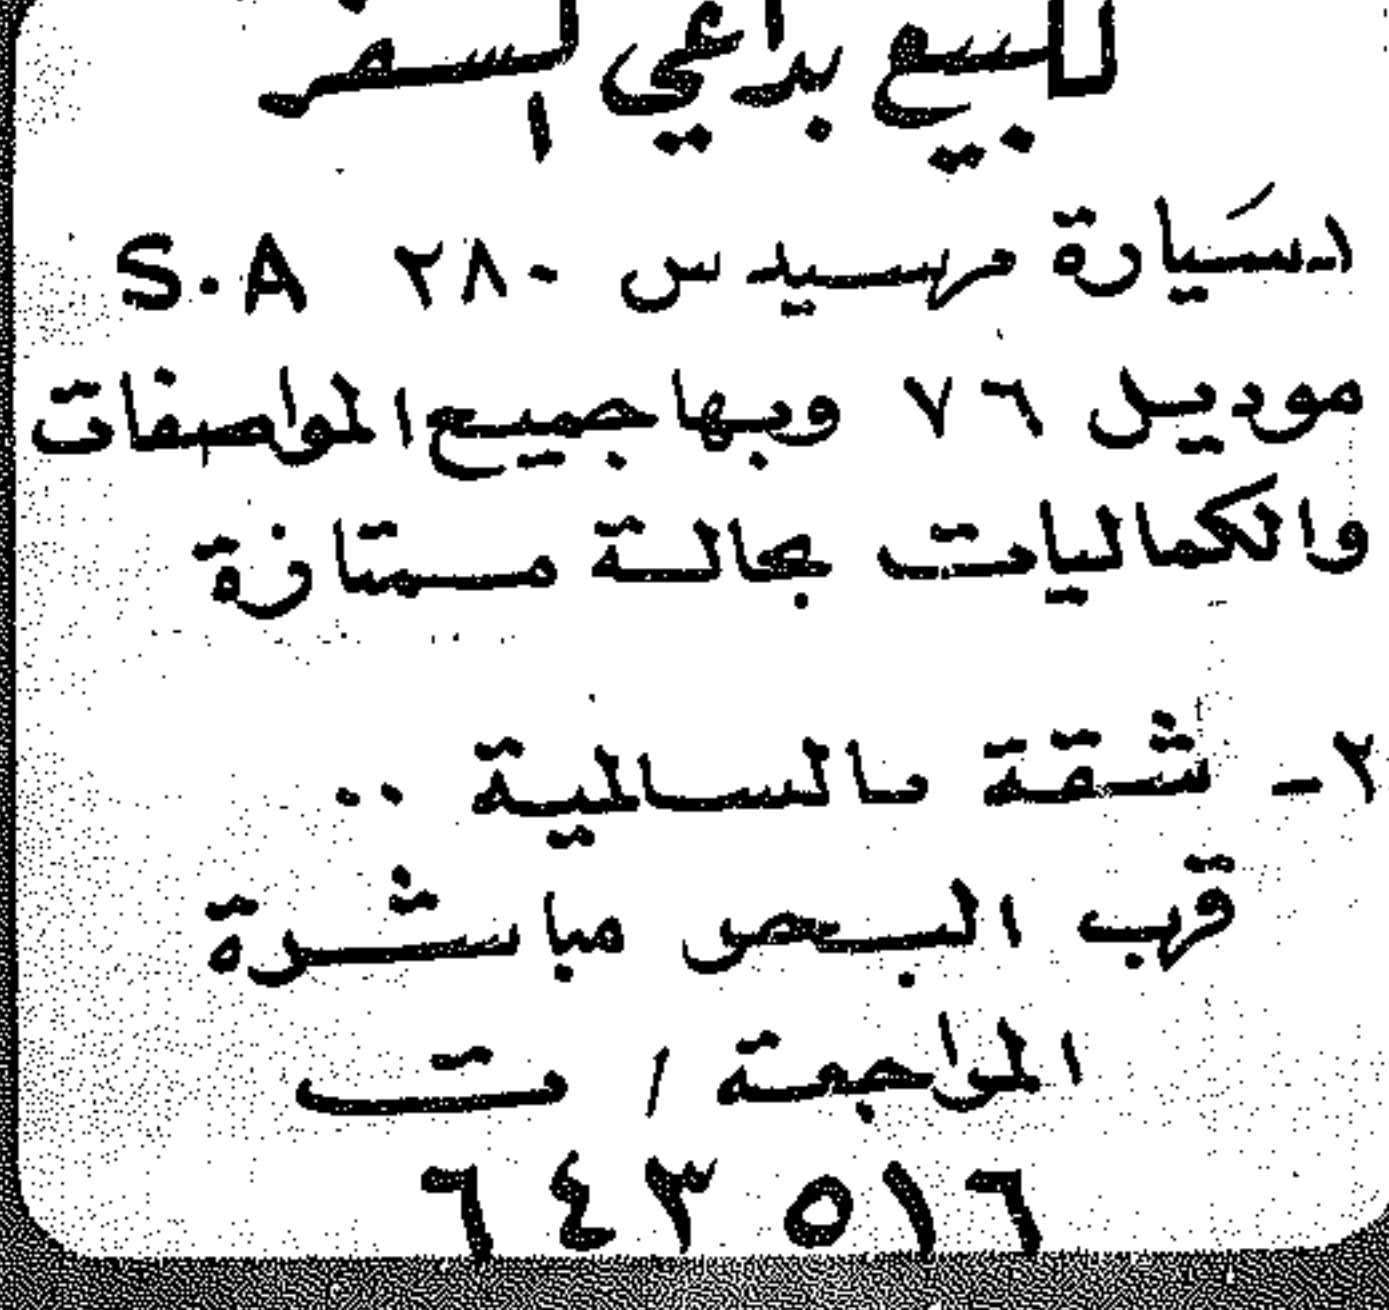 للبيع بداعي السفر
١ـ سَيارة مرسيدس ٢٨٠ S.A
موديل ٧٦ وبها جميع المواصفات
والكماليات بحالة ممتازة
٢ - شقة بالسالمية ..
قرب البحر مباشرة
المراجعة / ت
٦٤٣٥١٦